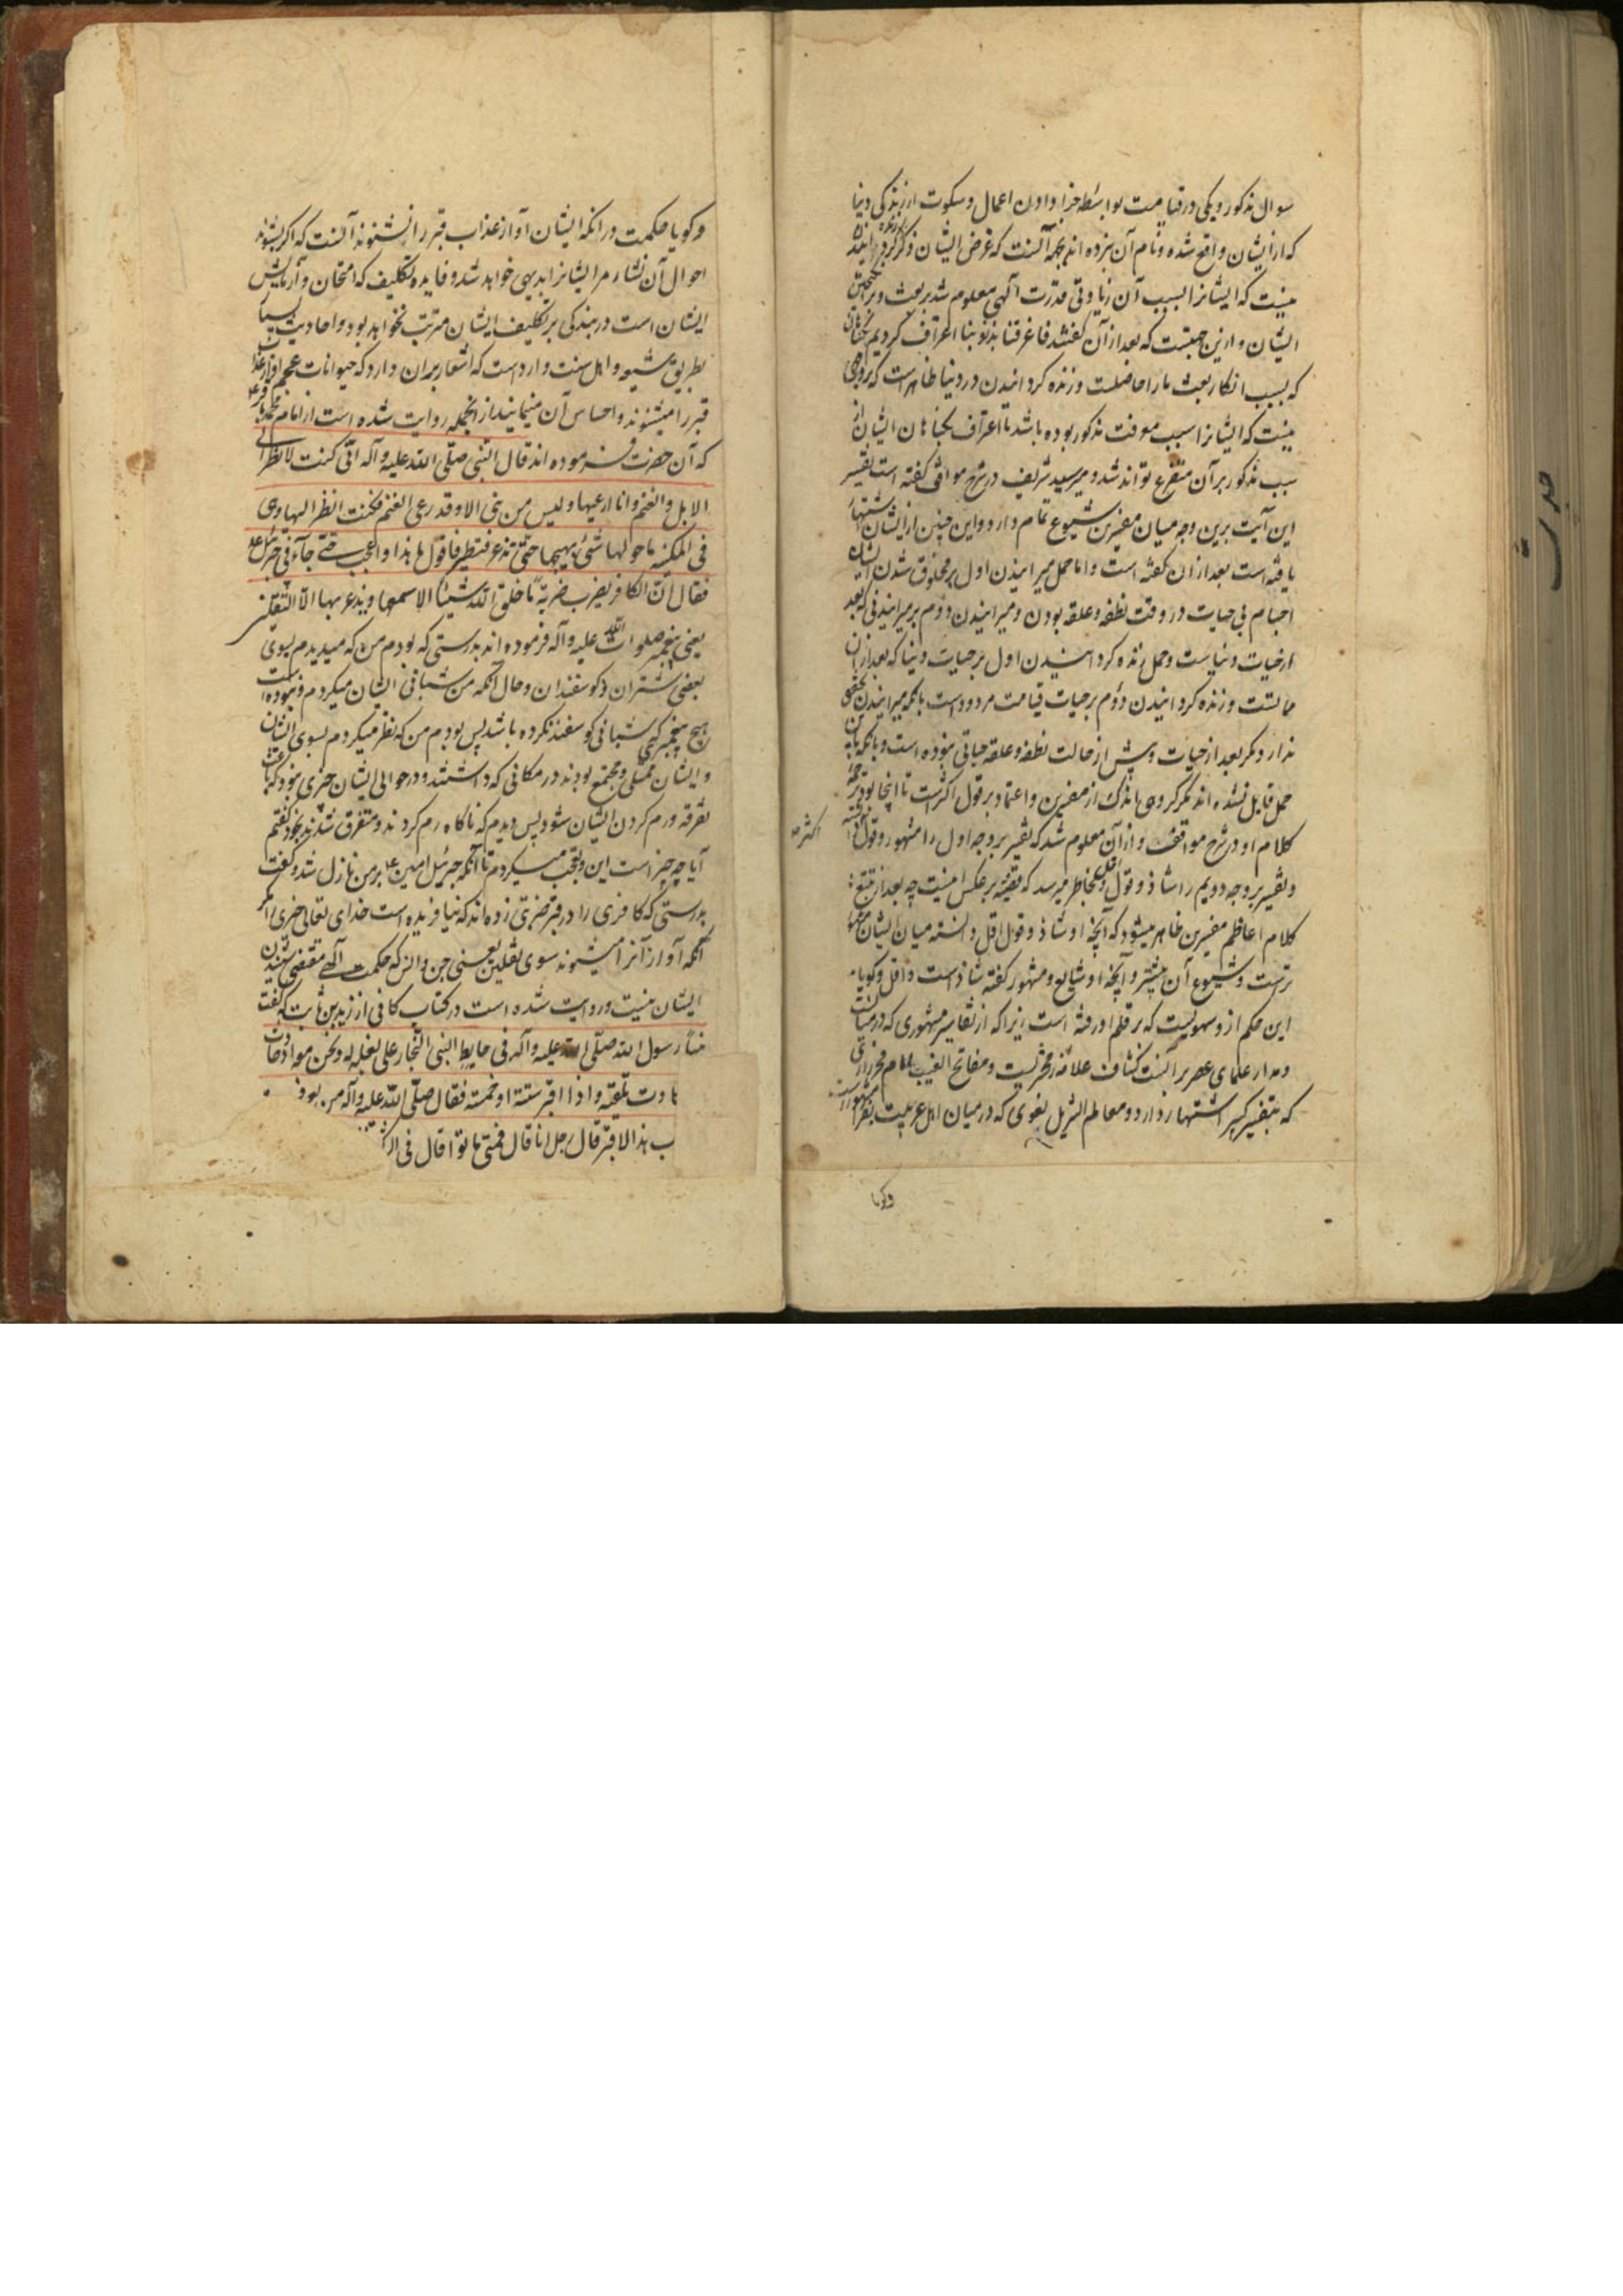 سوال مذکور و یکی در قیامت بواسطه جزا دادن اعمال و سکوت از زندگی دنیا
که از ایشان واقع شده و نام آن نبرده اند بجهة آنست که غرض ایشان ذکر کردن
نیست که ایشانرا بسبب آن زیادتی قدرت آلهی معلوم شد بر بعث و بر
ایشان و ازین جهتست که بعد از آن گفتند فاعترفنا بذنوبنا اعتراف کردیم بگناهان
که بسبب انکار بعث ما را حاصلست و زنده کردانیدن در دنیا ظاهر است که بروجهی
نیست که ایشانرا سبب معرفت مذکور بوده باشد تا اعتراف بگناهان ایشان از
سبب مذکور بر آن متفرع تواند شد و میر سید شریف در شرح مواقف گفته است تفسیر
این آیت برین وجه میان مفسرین شیوع تمام دارد و این چنین از ایشان اشتهار
یافته است بعد از ان گفته است و اما حمل میرانیدن اول بر مخلوق شدن ایشان
اجسام بی حیات در وقت نطفه و علقه بودن و میرانیدن دوم بر میرانیدنی که بعد
از حیات دنیاست و حمل زنده کردانیدن اول بر حیات دنیا که بعد از آن
مماتست و زنده کردانیدن دوم بر حیات قیامت مردود است بانکه میرانیدن تحقق
ندارد مگر بعد از حیات و پیش از حالت نطفه و علقه حیاتی نبوده است و بانکه باین
حمل قایل نشده اند مگر گروهی اندک از مفسرین و اعتماد بر قول اکثرست تا اینجا بود ترجمه
کلام او در شرح مواقف و از آن معلوم شد که تفسیر بر وجه اول را مشهور و قول
اکثر
و تفسیر بر وجه دویم را شاذ و قول اقل و بخاطر میرسد که قضیه بر عکس اینست چه بعد از تتبع
کلام اعاظم مفسرین ظاهر میشود که آنچه او شاذ و قول اقل دانسته میان ایشان مشهور
ترست و شیوع آن بیشتر و آنچه او شایع و مشهور گفته شاذ است و اقل و گویا
این حکم از و سهویست که بر قلم او رفته است زیرا که از تفاسیر مشهوری که در میانست
و مدار علمای عصر بر آنست کشاف علامه زمخشریست و مفاتح الغیب امام فخر رازی
که بتفسیر کبیر اشتهار دارد و معالم التنزیل بغوی که در میان اهل عربیت
وگویا
و گویا حکمت در انکه ایشان آواز عذاب قبر را نشنوند آنست که اگر بشنوند
احوال آن نشاء مر ایشانرا بدیهی خواهد شد و فایده تکلیف که امتحان و آزمایش
ایشان است در بندگی بر تکلیف ایشان مرتب نخواهد بود و احادیث بسیار
بطریق شیعه و اهل سنت وارد است که اشعار بر ان دارد که حیوانات عجم آواز عذاب
قبر را میشنوند و احساس آن مینمایند از انجمله روایت شده است از امام محمد باقر ع
که آن حضرت فرموده اند قال النبی صلّی الله علیه وآله انّی کنت لانظر الی
الابل والغنم وانا ارعیها ولیس من نبی الا وقد رعی الغنم فکنت انظر الیها وهی
فی المکینه ما حولها شیء یهیجها حتّی تذعر فتطیر فاقول ما هذا واعجب حتّی جآءنی جبرئیل ع
فقال انّ الکافر یضرب ضربةً ما خلق الله شیئا الا سمعها ویذعر بها الّا الثقلین
یعنی پیغمبر صلوات الله علیه وآله فرموده اند بدرستی که بودم من که میدیدم بسوی
بعضی شتران و گوسفندان و حال آنکه من شبانی ایشان میکردم و نبوده است
هیچ پیغمبری که شبانی گوسفند نکرده باشد پس بودم من که نظر میکردم بسوی ایشان
و ایشان ممتلی و مجتمع بودند در مکانی که داشتند و در حوالی ایشان چیزی نبود که باعث
تفرقه و رم کردن ایشان شود پس دیدم که ناگاه رم کردند و متفرق شدند بخود گفتم
آیا چه چیز است این و تعجب میکردم تا آنکه جبرئیل امین ع بر من نازل شد و گفت
بدرستی که کافری را در قبر ضربتی زده اند که نیافریده است خدای تعالی چیزی مگر
آنکه آواز آنرا میشنوند سوی ثقلین یعنی جن و انس که حکمت آلهی مقتضی شنیدن
ایشان نیست و روایت شده است در کتاب کافی از زید بن ثابت که گفت
رسول الله صلّی الله علیه وآله فی حایط لبنی النجار علی بغلة له ونحن معه اذ حادت
به وکادت تلقیه واذا اقبر ستة او خمسة فقال صلّی الله علیه وآله من یعرف
هذا الاقبر قال رجل انا قال فمتی ماتوا قال فی